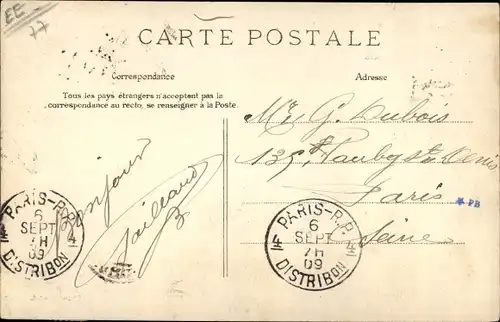 EE
77
CARTE POSTALE
Correspondance
Adresse
Tous les pays étrangers n'acceptent pas la
correspondance au recto, se renseigner à la Poste.
Bonjour
Mr G. Dubois
135 Faubg St Denis
Paris
Seine
PARIS-R.P.
6
SEPT
7H
09
DISTRIBON
4
PARIS-R.P.
6
SEPT
7H
09
DISTRIBON
* PB